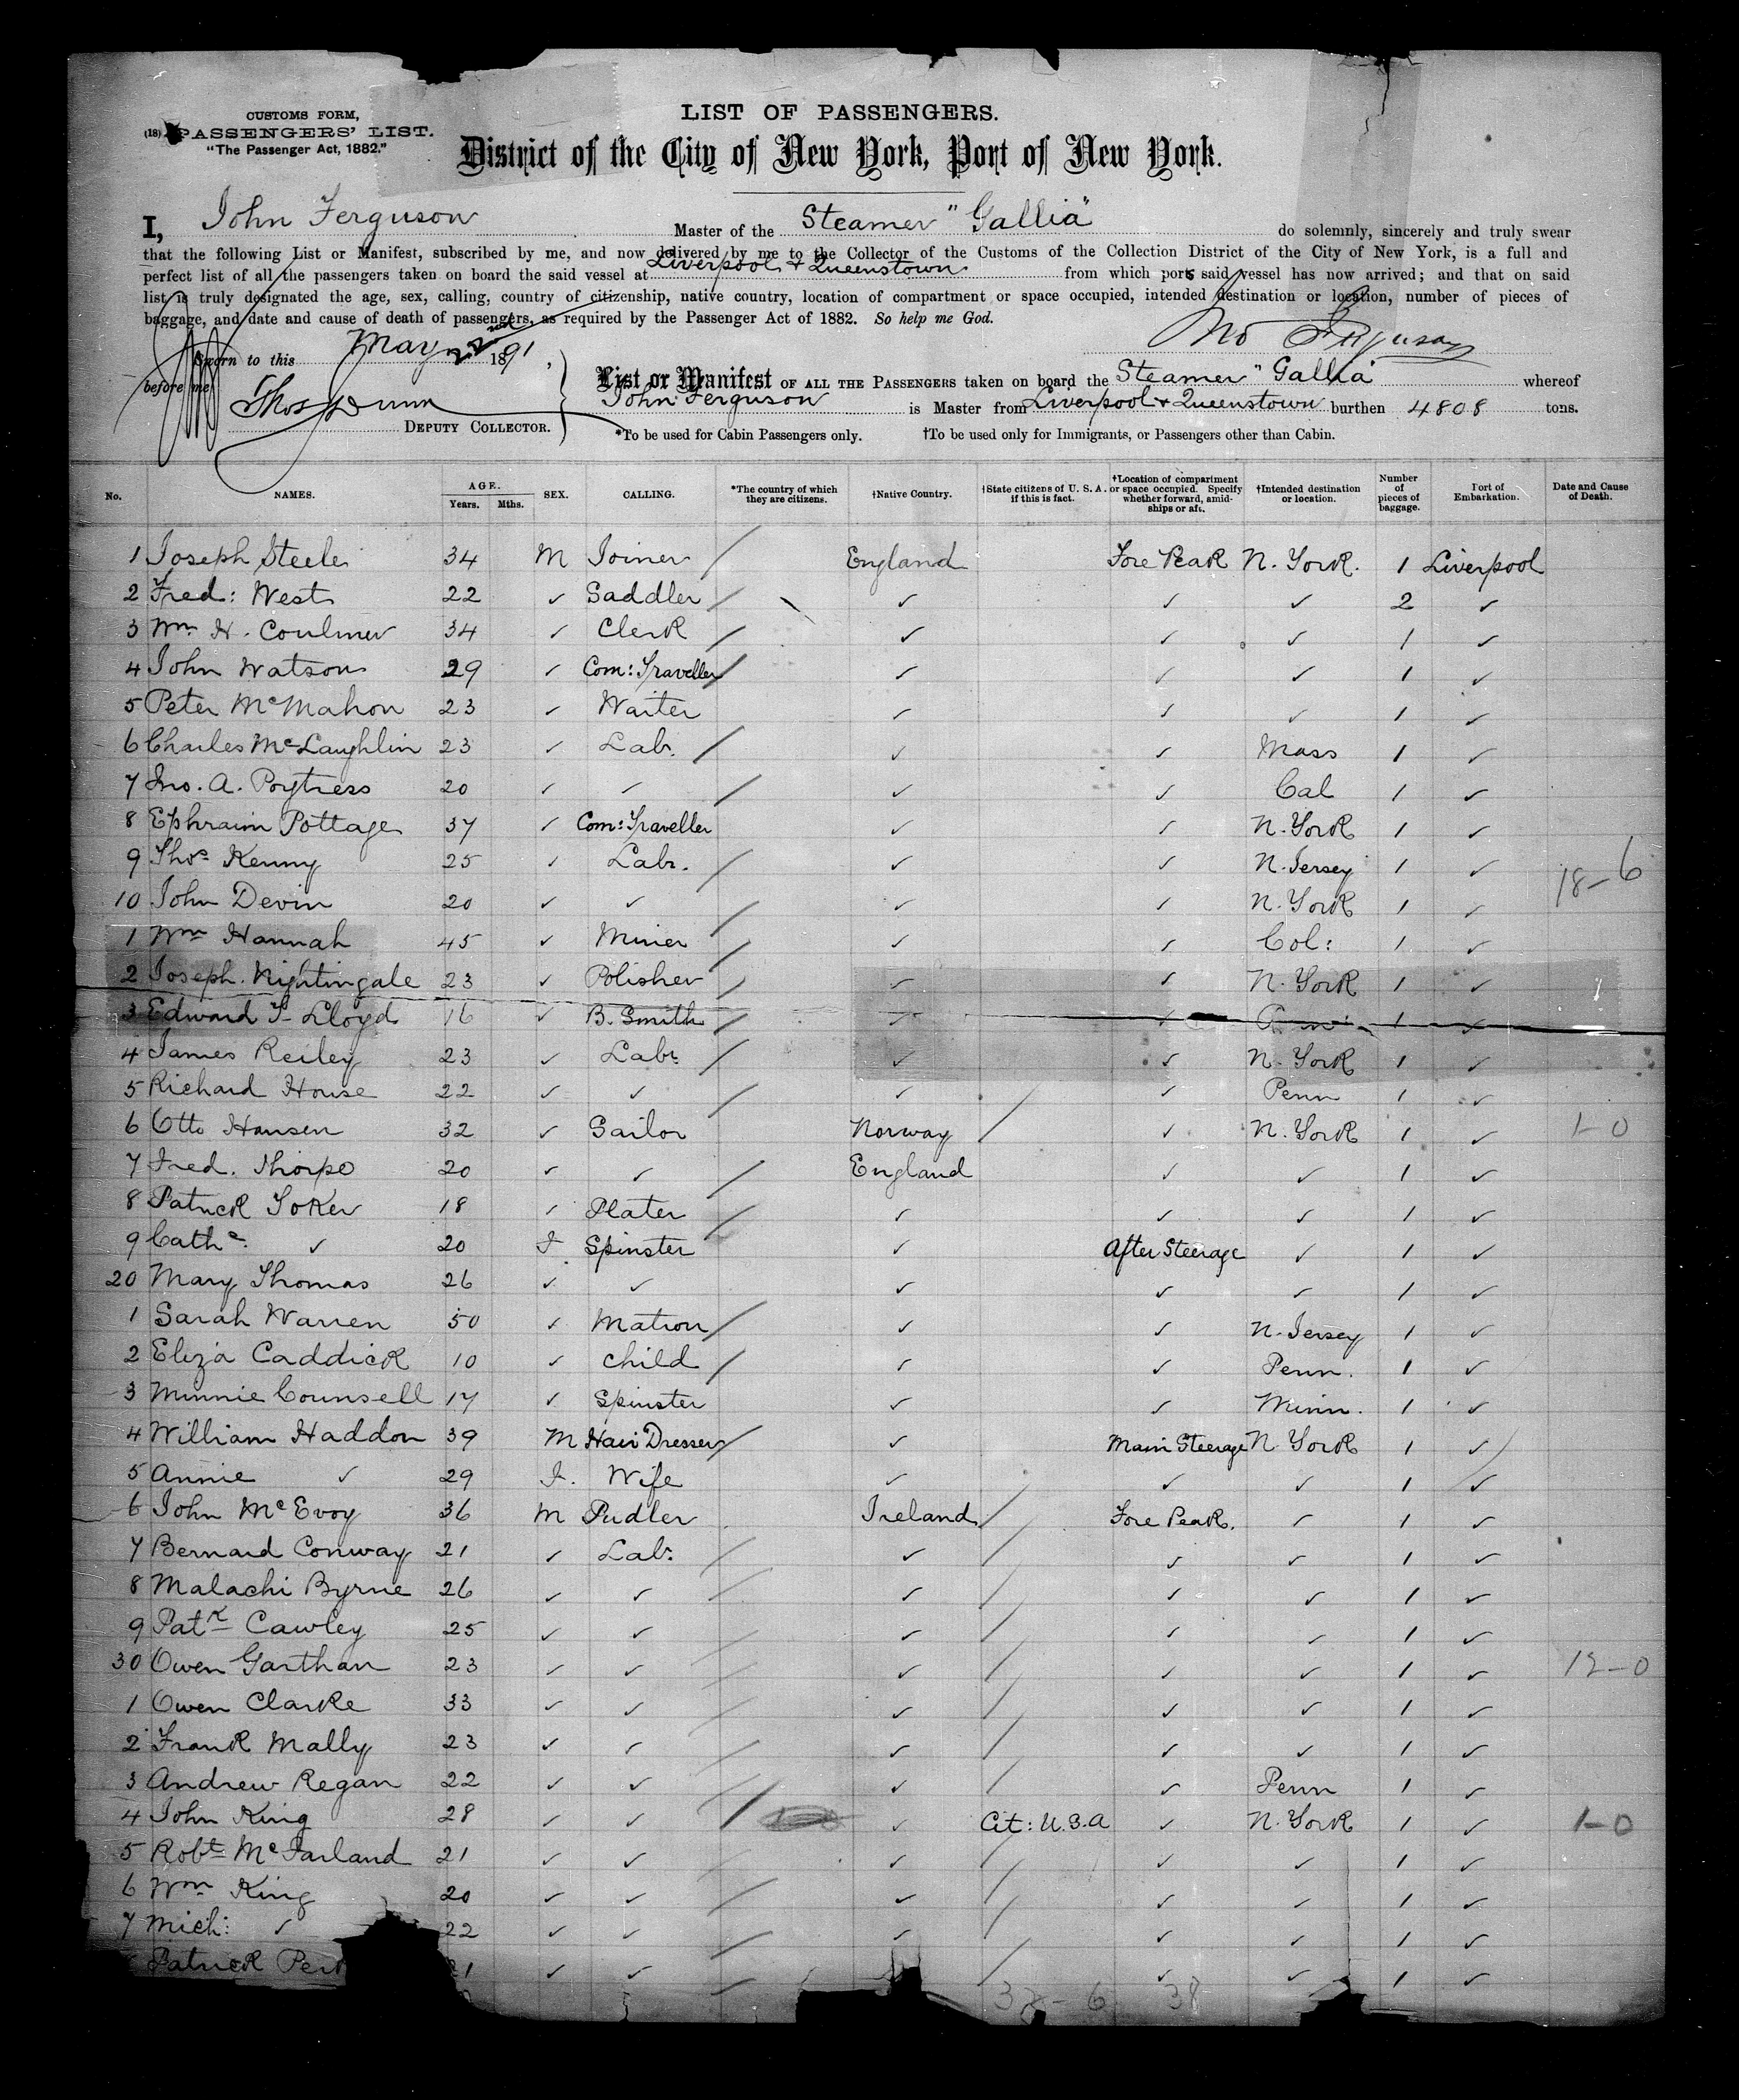 CUSTOMS FORM,
(18) PASSENGERS' LIST.
"The Passenger Act, 1882."
LIST OF PASSENGERS.
District of the City of New York, Port of New York.
I, John Ferguson Master of the Steamer "Gallia" do solemnly, sincerely and truly swear
that the following List or Manifest, subscribed by me, and now delivered by me to the Collector of the Customs of the Collection District of the City of New York, is a full and
perfect list of all the passengers taken on board the said vessel at Liverpool & Queenstown from which ports said vessel has now arrived; and that on said
list is truly designated the age, sex, calling, country of citizenship, native country, location of compartment or space occupied, intended destination or location, number of pieces of
baggage, and date and cause of death of passengers, as required by the Passenger Act of 1882. So help me God.
Jno Ferguson
Sworn to this May 22nd 1891,
before me
Thos Dunn
DEPUTY COLLECTOR.
List or Manifest OF ALL THE PASSENGERS taken on board the Steamer "Gallia" whereof
John Ferguson is Master from Liverpool & Queenstown burthen 4808 tons.
*To be used for Cabin Passengers only. †To be used only for Immigrants, or Passengers other than Cabin.
No. NAMES. AGE. Years. Mths. SEX. CALLING. *The country of which they are citizens. †Native Country. †State citizens of U. S. A. if this is fact. †Location of compartment or space occupied. Specify whether forward, amidships or aft. †Intended destination or location. Number of pieces of baggage. Port of Embarkation. Date and Cause of Death.
1 Joseph Steele 34 M Joiner / England Fore Peak N. York. 1 Liverpool
2 Fred: West 22 ✓ Saddler / ✓ ✓ ✓ 2 ✓
3 Wm H. Coulmer 34 ✓ Clerk / ✓ ✓ ✓ 1 ✓
4 John Watson 29 ✓ Com: Traveller / ✓ ✓ ✓ 1 ✓
5 Peter McMahon 23 ✓ Waiter ✓ ✓ ✓ 1 ✓
6 Charles McLaughlin 23 ✓ Lab. / ✓ ✓ Mass 1 ✓
7 Jno. A. Poytress 20 ✓ ✓ / ✓ ✓ Cal 1 ✓
8 Ephraim Pottage 37 ✓ Com: Traveller ✓ ✓ N. York 1 ✓
9 Thos Kenny 25 ✓ Labr. / ✓ ✓ N. Jersey 1 ✓ 18-6
10 John Devin 20 ✓ ✓ / ✓ ✓ N. York 1 ✓
1 Wm Hannah 45 ✓ Miner / ✓ ✓ Col: 1 ✓
2 Joseph Nightingale 23 ✓ Polisher / ✓ ✓ N. York 1 ✓
3 Edward T. Lloyd 16 ✓ B. Smith / ✓ ✓ 1 ✓
4 James Reiley 23 ✓ Labr / ✓ ✓ N. York 1 ✓
5 Richard House 22 ✓ ✓ / ✓ ✓ Penn 1 ✓
6 Otto Hansen 32 ✓ Sailor Norway / ✓ N. York 1 ✓ 1-0
7 Fred. Thorpe 20 ✓ ✓ / England ✓ ✓ 1 ✓
8 Patrick Toker 18 ✓ Plater / ✓ ✓ ✓ 1 ✓
9 Cathe ✓ 20 F Spinster ✓ After Steerage ✓ 1 ✓
20 Mary Thomas 26 ✓ ✓ ✓ ✓ ✓ 1 ✓
1 Sarah Warren 50 ✓ Matron / ✓ ✓ N. Jersey 1 ✓
2 Eliza Caddick 10 ✓ Child / ✓ ✓ Penn. 1 ✓
3 Minnie Counsell 17 ✓ Spinster ✓ ✓ Minn. 1 ✓
4 William Haddon 39 M Hair Dresser / ✓ Main Steerage N. York 1 ✓
5 Annie ✓ 29 F. Wife ✓ ✓ ✓ 1 ✓
6 John McEvoy 36 M Pudler Ireland / Fore Peak. ✓ 1 ✓
7 Bernard Conway 21 ✓ Labr / ✓ / ✓ ✓ 1 ✓
8 Malachi Byrne 26 ✓ ✓ / ✓ / ✓ ✓ 1 ✓
9 Patk Cawley 25 ✓ ✓ / ✓ / ✓ ✓ 1 ✓
30 Owen Garthan 23 ✓ ✓ / ✓ / ✓ ✓ 1 ✓ 12-0
1 Owen Clarke 33 ✓ ✓ / ✓ / ✓ ✓ 1 ✓
2 Frank Mally 23 ✓ ✓ / ✓ / ✓ ✓ 1 ✓
3 Andrew Regan 22 ✓ ✓ / ✓ / ✓ Penn 1 ✓
4 John King 28 ✓ ✓ / ✓ Cit: U.S.A ✓ N. York 1 ✓ 1-0
5 Robt McFarland 21 ✓ ✓ / ✓ / ✓ ✓ 1 ✓
6 Wm King 20 ✓ ✓ / ✓ / ✓ ✓ 1 ✓
7 Mich: ✓ 22 ✓ ✓ / ✓ / ✓ ✓ 1 ✓
Patrick 21 ✓ ✓ / / ✓ ✓ 1 ✓
32-6 38